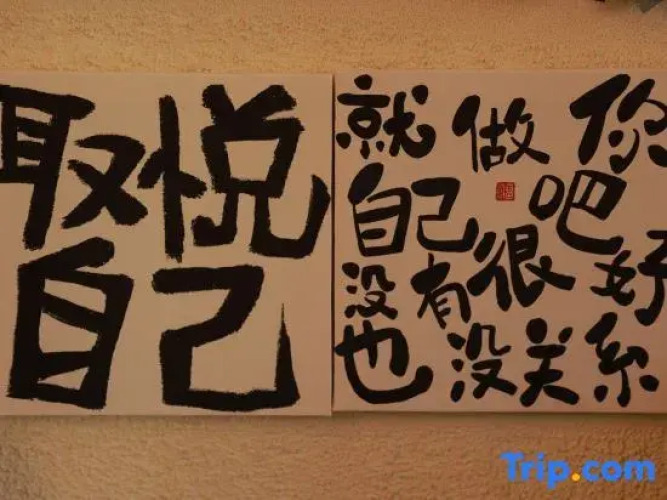 取悦
自己
就做你
自己吧
没有很好
也没关系
福
Trip.com